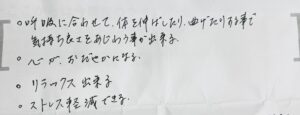 ○呼吸に合わせて、体を伸ばしたり、曲げたりする事で
気持ち良さをあじわう事が出来る
○心が、おだやかになる。
○リラックス出来る
○ストレス軽減できる。